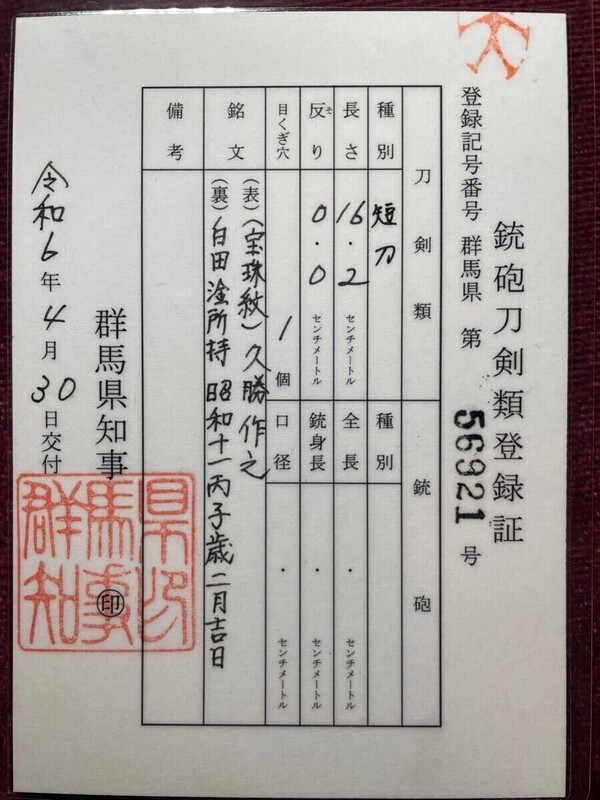 銃砲刀剣類登録証
登録記号番号 群馬県 第 56921 号
刀剣類
銃砲
種別 短刀
種別
長さ 16.2 センチメートル
全長 ・ センチメートル
反り そ 0.0 センチメートル
銃身長 ・ センチメートル
目くぎ穴 1 個
口径 ・ センチメートル
銘文 (表)(宝珠紋)久勝作之
(裏)白田淦所持 昭和十一丙子歳二月吉日
備考
群馬県知事 ㊞
令和6年4月30日交付
群馬県知事印